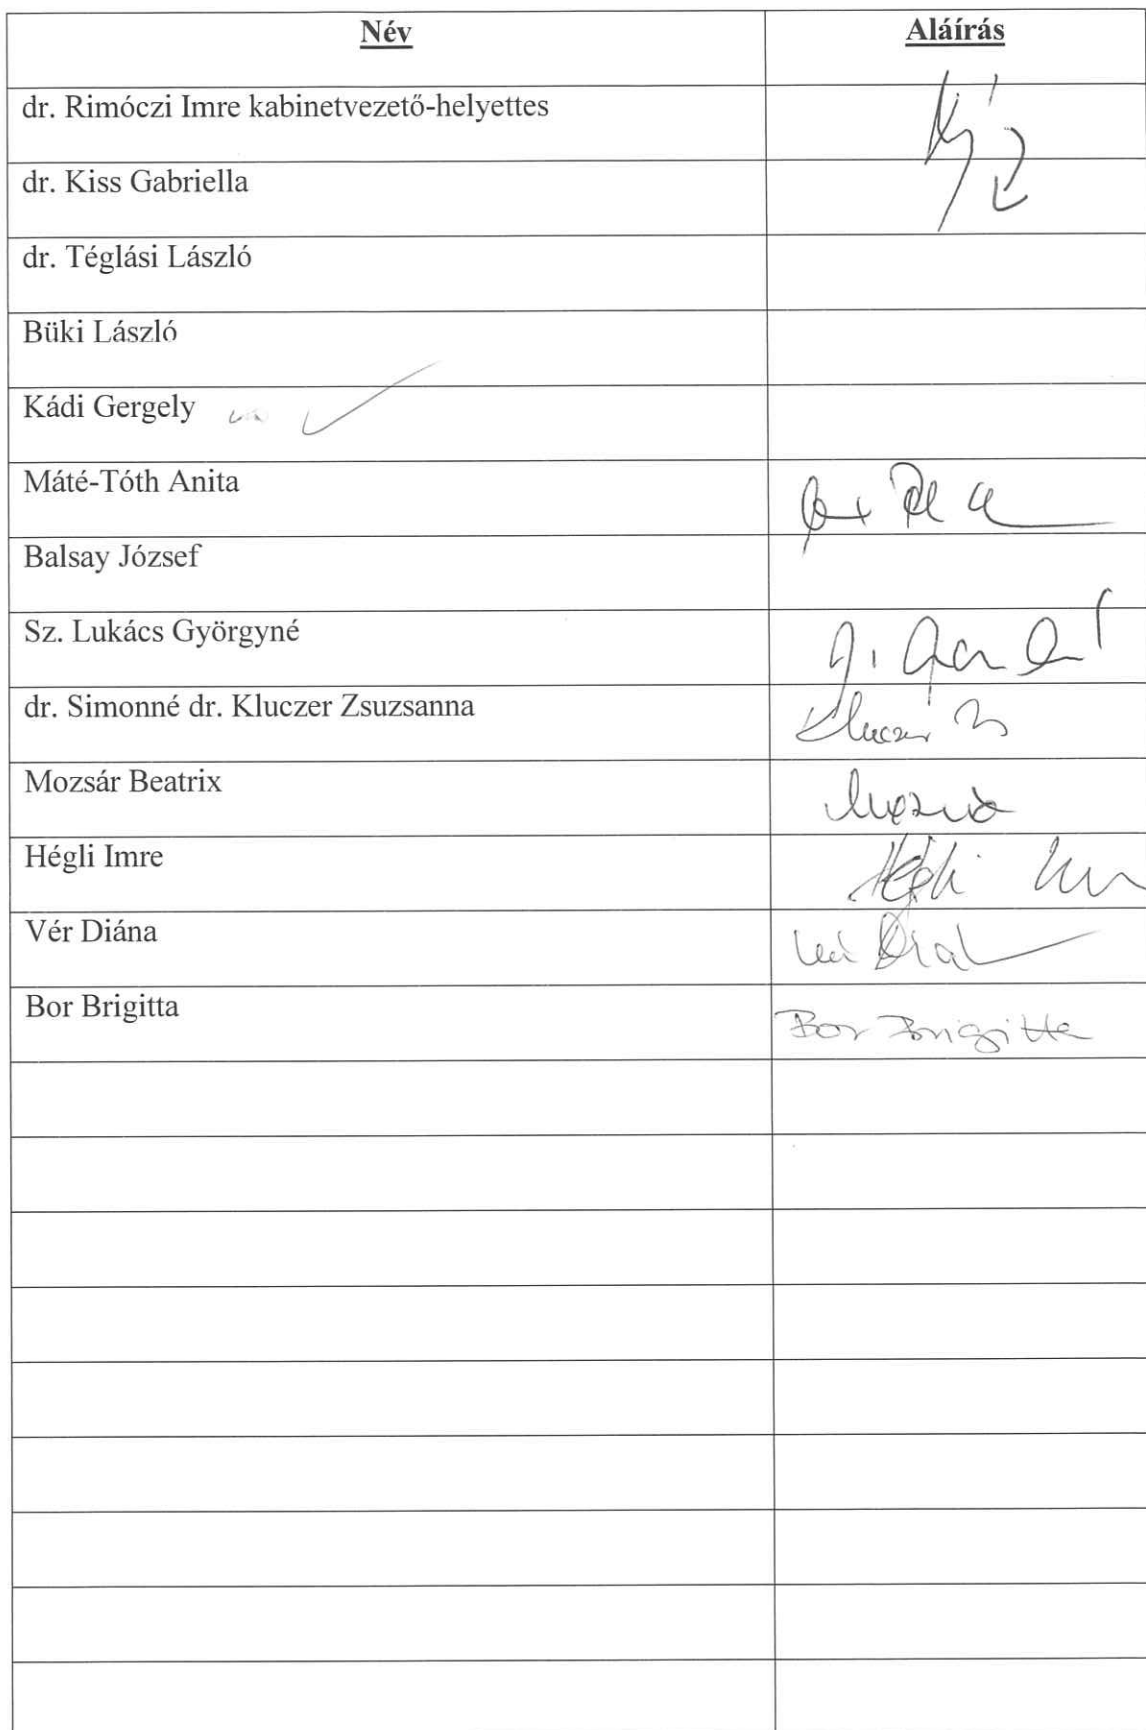 Név Aláírás
dr. Rimóczi Imre kabinetvezető-helyettes
dr. Kiss Gabriella
dr. Téglási László
Büki László
Kádi Gergely
Máté-Tóth Anita
Balsay József
Sz. Lukács Györgyné
dr. Simonné dr. Kluczer Zsuzsanna Kluczer Zs
Mozsár Beatrix
Hégli Imre Hégli Imre
Vér Diána
Bor Brigitta Bor Brigitta